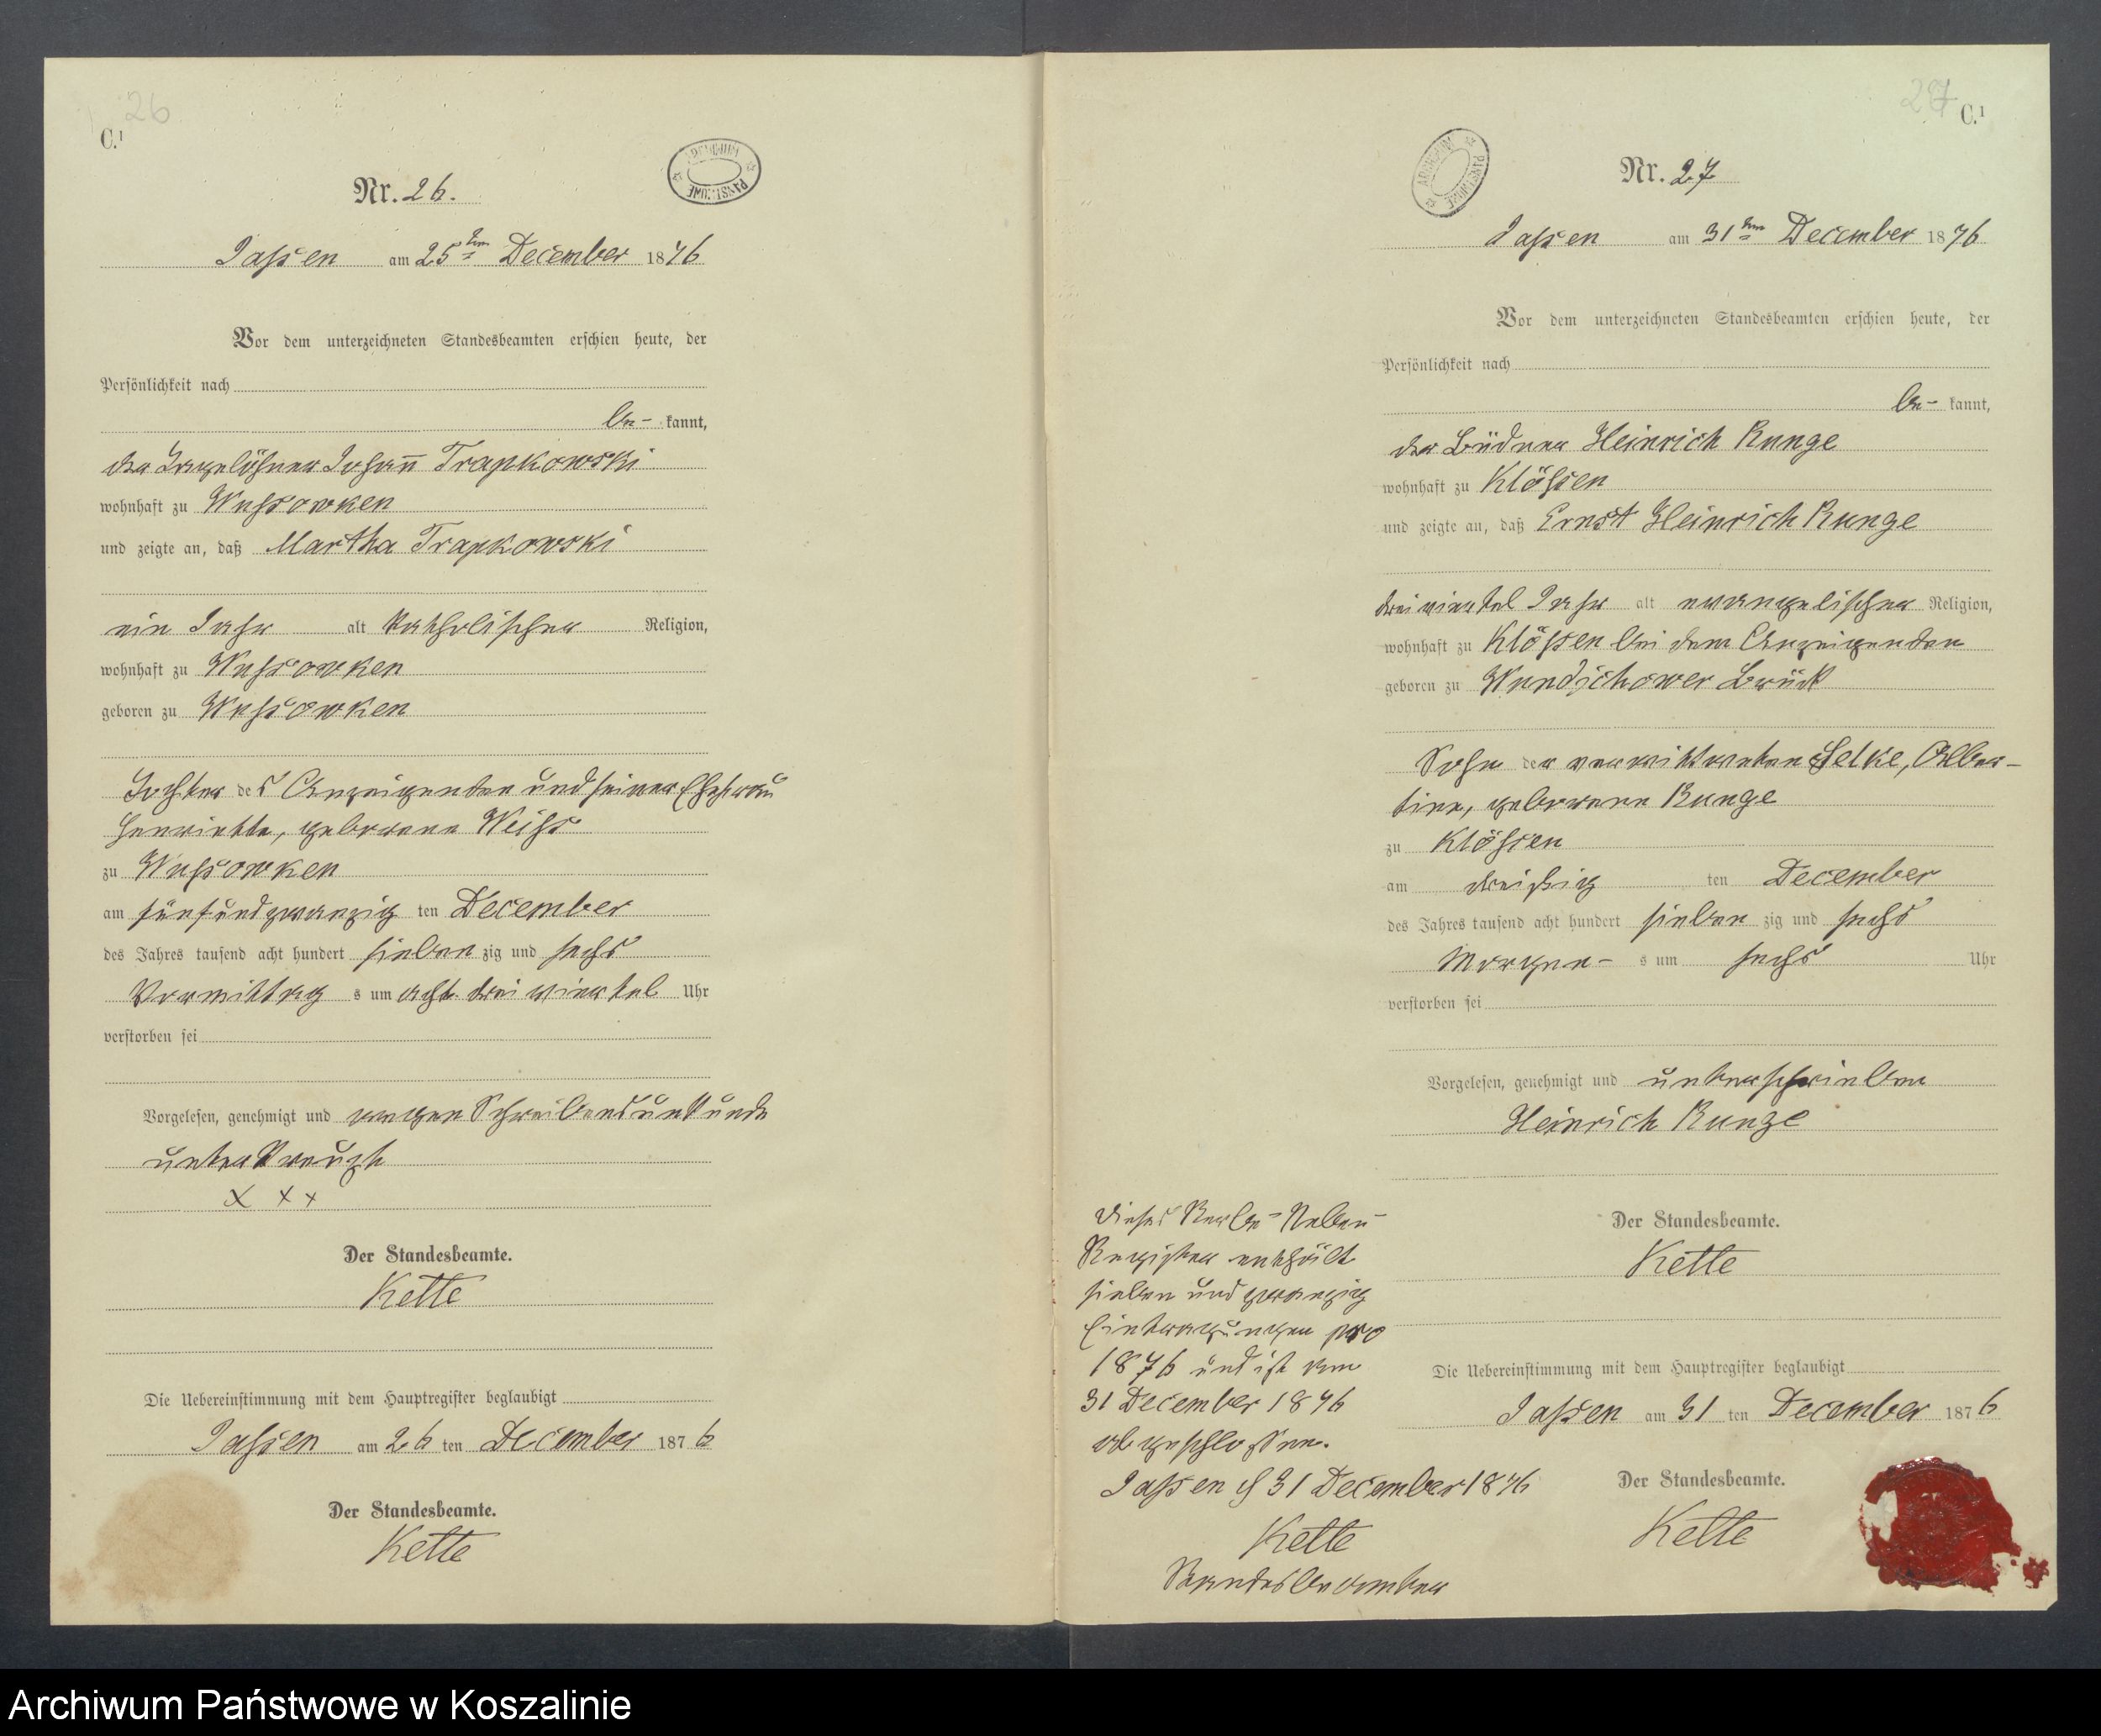 26
C.¹
ARCHIWUM PAŃSTWOWE
Nr. 26.
Jassen am 25ten December 1876
Vor dem unterzeichneten Standesbeamten erschien heute, der
Persönlichkeit nach
be- kannt,
der Tagelöhner Johann Trapkowski
wohnhaft zu Wussowken
und zeigte an, daß Martha Trapkowski
ein Jahr alt katholischer Religion,
wohnhaft zu Wussowken
geboren zu Wussowken
Tochter des Anzeigenden und seiner Ehefrau
Henriette, geborene Weiss
zu Wussowken
am fünfundzwanzig ten December
des Jahres tausend acht hundert sieben zig und sechs
Vormittag s um acht drei viertel Uhr
verstorben sei
Vorgelesen, genehmigt und wegen Schreibensunkunde
unterkreuzt
x x x
Der Standesbeamte.
Kette
Die Uebereinstimmung mit dem Hauptregister beglaubigt
Jassen am 26 ten December 1876
Der Standesbeamte.
Kette
27
C.¹
ARCHIWUM PAŃSTWOWE
Nr. 27
Jassen am 31ten December 1876
Vor dem unterzeichneten Standesbeamten erschien heute, der
Persönlichkeit nach
be- kannt,
der Büdner Heinrich Runge
wohnhaft zu Klössen
und zeigte an, daß Ernst Heinrich Runge
drei viertel Jahr alt evangelischer Religion,
wohnhaft zu Klössen bei dem Anzeigenden
geboren zu Wundichower Brück
Sohn der verwittweten Selke, Alber-
tine, geborene Runge
zu Klössen
am dreißig ten December
des Jahres tausend acht hundert sieben zig und sechs
Morgen- s um sechs Uhr
verstorben sei
Vorgelesen, genehmigt und unterschrieben
Heinrich Runge
Der Standesbeamte.
Kette
Die Uebereinstimmung mit dem Hauptregister beglaubigt
Jassen am 31 ten December 1876
Der Standesbeamte.
Kette
Dieses Sterbe-Neben-
Register enthält
sieben und zwanzig
Eintragungen pro
1876 und ist am
31 December 1876
abgeschlossen.
Jassen 31 December 1876
Kette
Standesbeamter
Archiwum Państwowe w Koszalinie